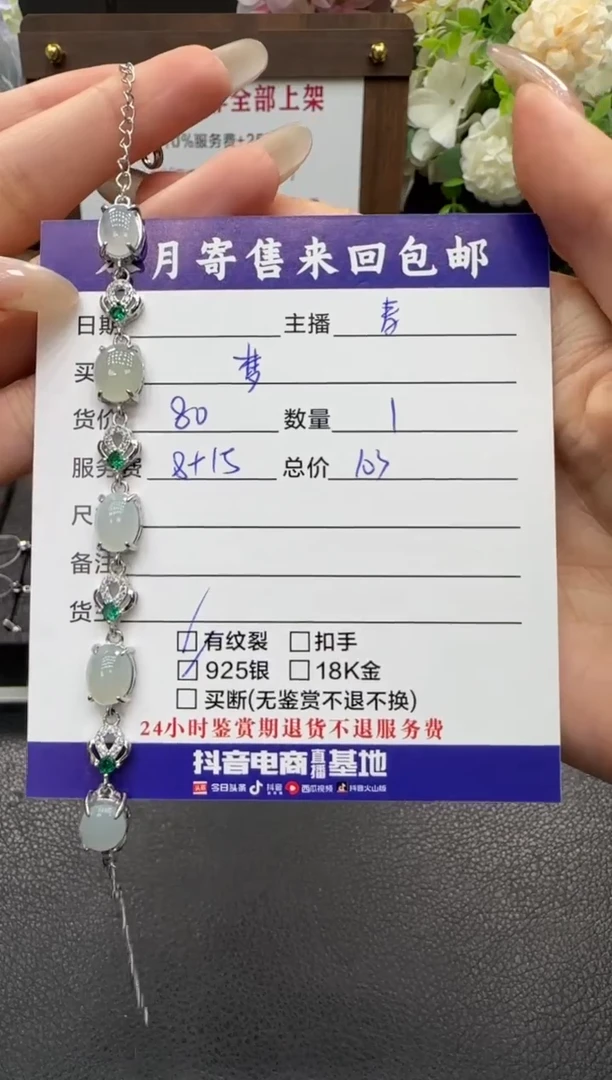 全部上架
0%服务费+25
月寄售来回包邮
日期 主播 春
买 梦
货价 80 数量 1
服务费 8+15 总价 103
尺
备注
货
有纹裂 扣手
925银 18K金
买断(无鉴赏不退不换)
24小时鉴赏期退货不退服务费
抖音电商直播基地
头条 今日头条 抖音 西瓜视频 抖音火山版